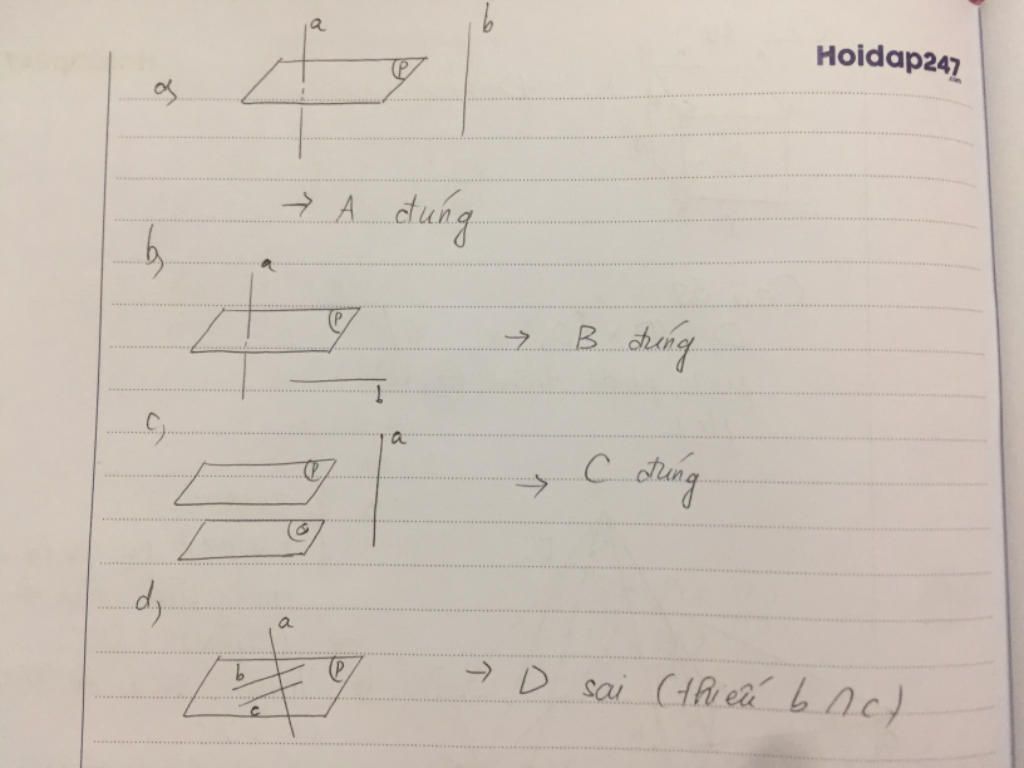 Hoidap247
.com
a b
a) P
→ A đúng
b) a
P → B đúng
b
c) a
P → C đúng
Q
d) a
b P → D sai (thiếu b ∩ c)
c